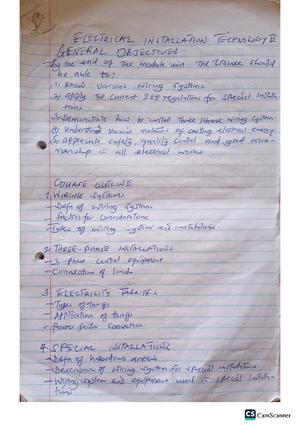 ELECTRICAL INSTALLATION TECHNOLOGY II
GENERAL OBJECTIVES
By the end of the module unit the trainee should
be able to:
1) Know various wiring systems
2) Apply the current IEE regulation for special Installa-
tions
3) Demonstrate how to install Three phase wiring system
4) Understand various methods of costing electrical energy
5) appreciate safety, quality control and good work-
manship in all electrical works
COURSE OUTLINE
1. WIRING SYSTEMS
- Defn of wiring system
- factors for considerations
- Types of wiring system and installations
2. THREE-PHASE INSTALLATIONS
- 3-phase control equipment
- Connection of loads
3. ELECTRICITY TARIFFS
- Types of tariffs
- Application of tariffs
- Power factor Correction
4. SPECIAL INSTALLATIONS
- Defn of hazardous areas
- Description of wiring system for special installations
- Wiring system and equipment used in special installa-
tions
CS CamScanner